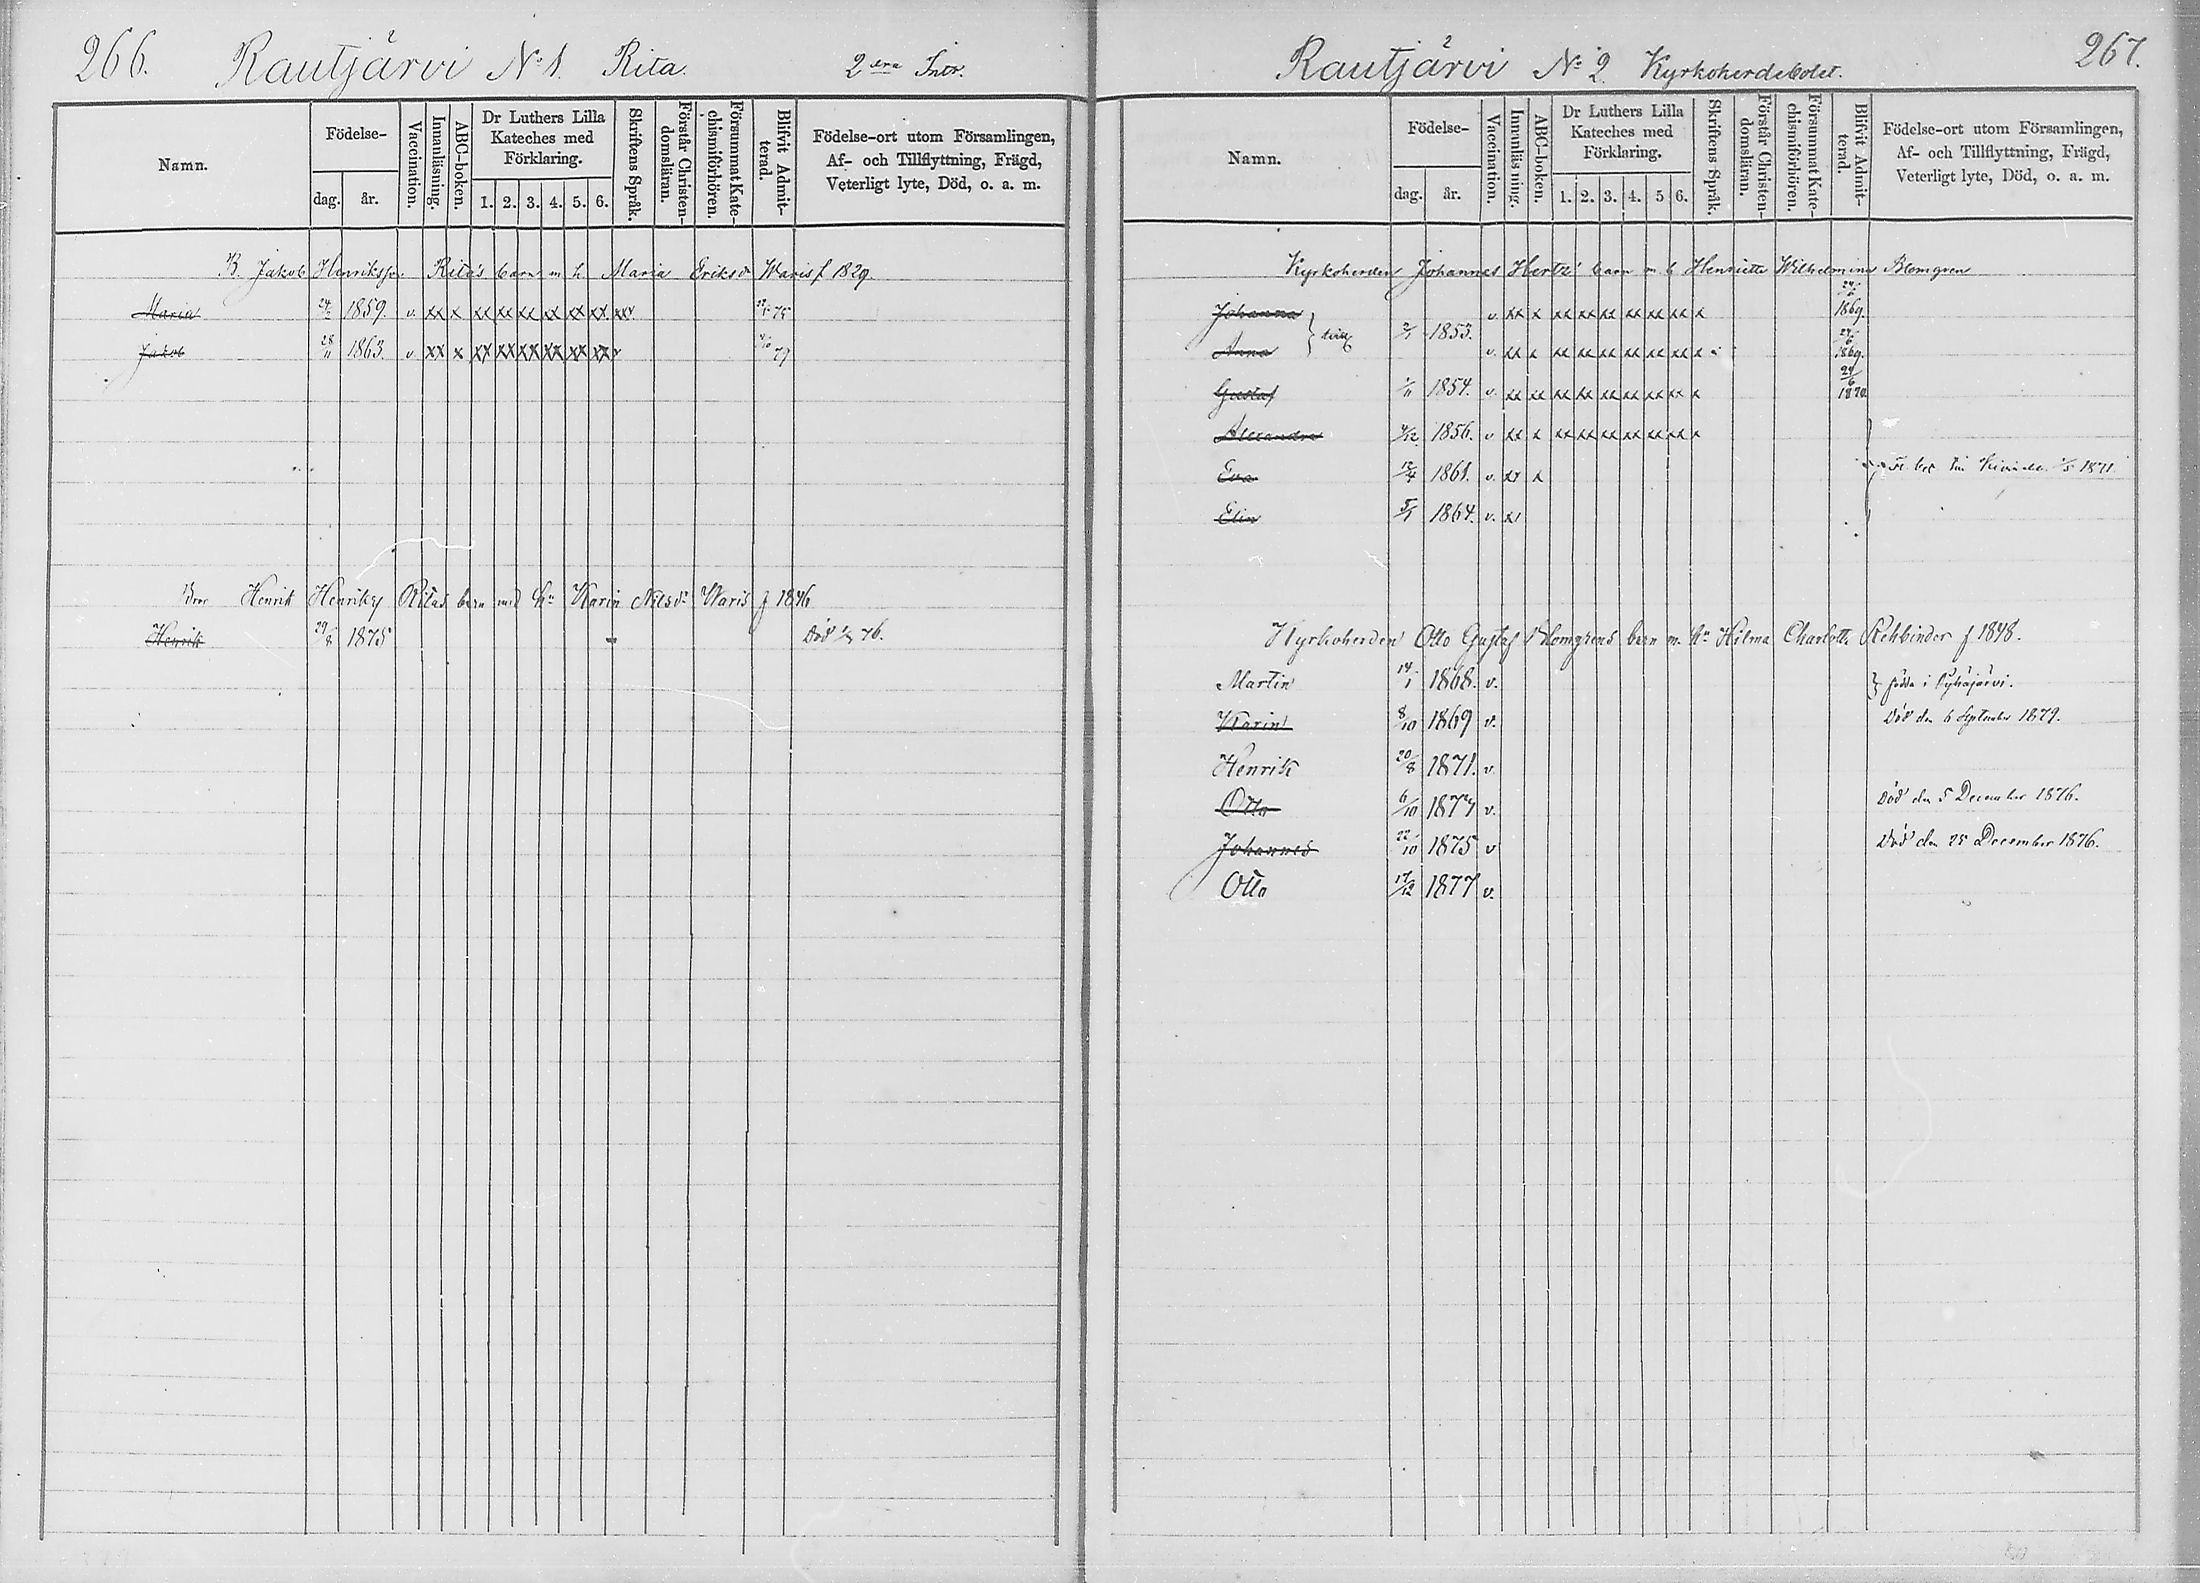 266. Rautjärvi № 1. Rita. 2dra Intr.
Namn.
Födelse-
dag. år.
Vaccination.
Innanläsning.
ABC-boken.
Dr Luthers Lilla Kateches med Förklaring.
1. 2. 3. 4. 5. 6.
Skriftens Språk.
Förstår Christen-domsläran.
Försummat Kate-chismiförhören.
Blifvit Admit-terad.
Födelse-ort utom Församlingen,
Af- och Tillflyttning, Frägd,
Veterligt lyte, Död, o. a. m.
B. Jakob Henrikss. Rita's barn m h. Maria Eriksdr Waris f 1829.
Maria 1859. v. xx x xx xx xx xx xx xx 75
Jakob 28/11 1863. v. xx x xx xx xx xx xx xx 79
Henrik Henrikss Ritas barn med hu Karin Nilsdr Waris f 1846
Henrik 29/8 1875 Död 76.
Rautjärvi № 2 Kyrkoherdebolet. 267.
Namn.
Födelse-
dag. år.
Vaccination.
Innanläsning.
ABC-boken.
Dr Luthers Lilla Kateches med Förklaring.
1. 2. 3. 4. 5 6.
Skriftens Språk.
Förstår Christen-domsläran.
Försummat Kate-chismiförhören.
Blifvit Admit-terad.
Födelse-ort utom Församlingen,
Af- och Tillflyttning, Frägd,
Veterligt lyte, Död, o. a. m.
Kyrkoherden Johannes Hertz' barn m h Henriette Wilhelmina Blomgren
Johanna v. xx x xx xx xx xx xx xx x 24/6 1869.
1853.
Anna v. xx x xx xx xx xx xx xx x 24/6 1869.
Gustaf 1854. v. xx xx xx xx xx xx xx xx x 24/6 1870
Alexandra 1856. v xx x xx xx xx xx xx xx x
Eva 12/4 1861. v. xx x 1871.
Elin 5/1 1864. v. xx
Kyrkoherden Otto Gustaf Blomgrens barn m. hu Hilma Charlotta Rehbinder f 1848.
Martin 14/1 1868. v. födda i Pyhäjärvi.
Karin 8/10 1869 v. Död den 6 September 1879.
Henrik 20/8 1871. v.
Otto 6/10 1874 v. Död den 5 December 1876.
Johannes 22/10 1875 v Död den 25 December 1876.
Otto 17/12 1877 v.